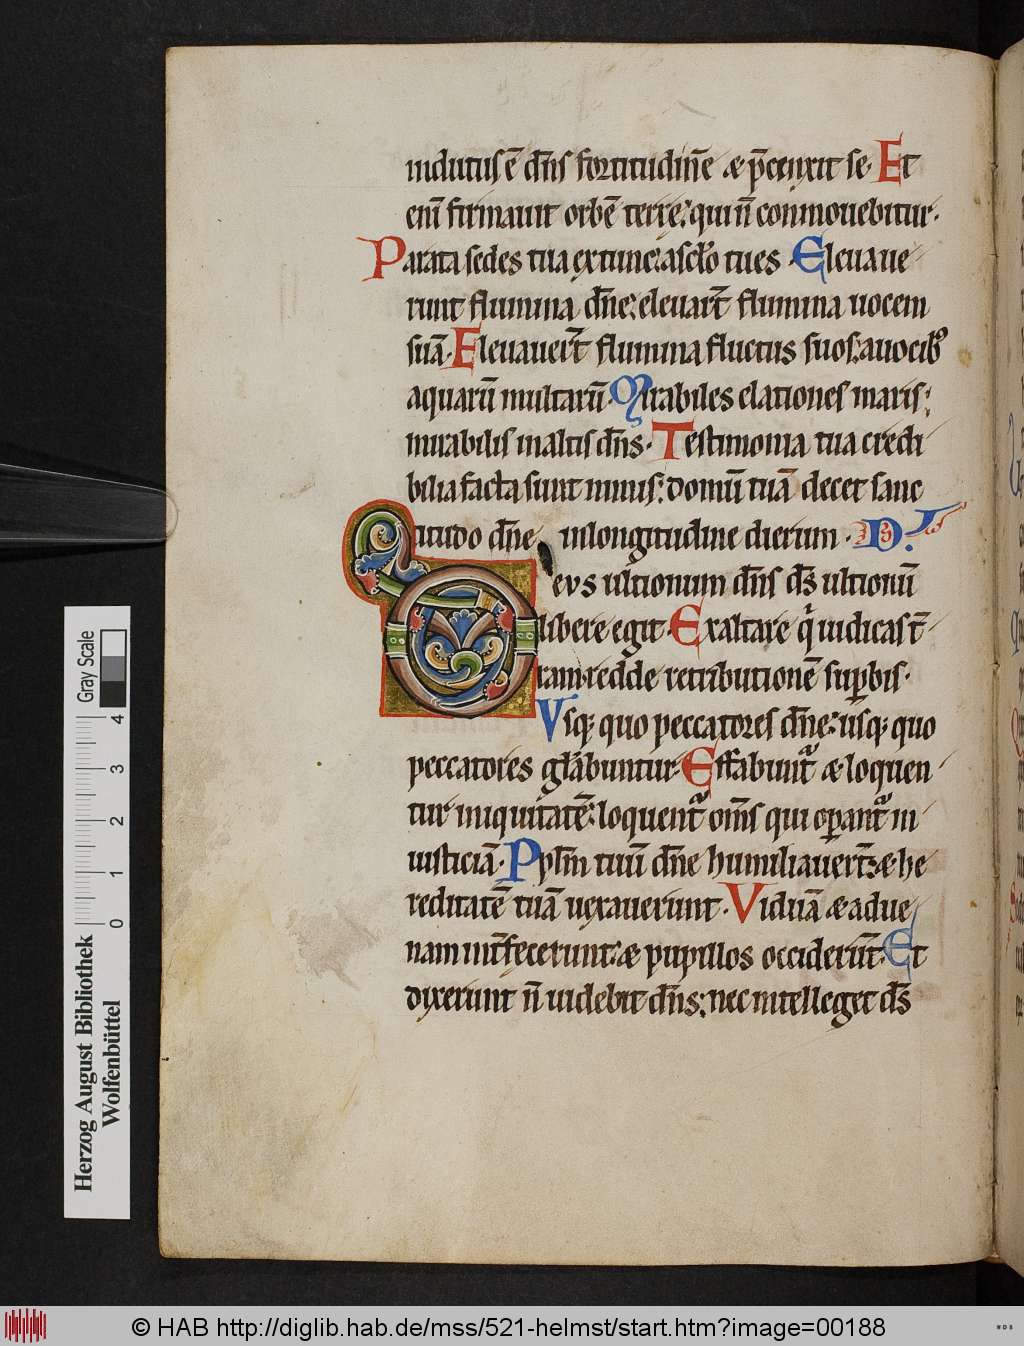 indutus ē dn̄s fortitudinē æ p̄cinxit se. Et
eni firmauit orbē terrę: qui n̄ conmouebitur.
Parata sedes tua extunc: asclo tu es. Eleuaue
runt flumina dn̄e: eleuar̄t flumina uocem
suā. Eleuauer̄t flumina fluctus suos: auocib
aquarū multarū. Mirabiles elationes maris:
mirabilis inaltis dn̄s. Testimonia tua credi
bilia facta sunt nimis: domū tuā decet sanc
titudo dn̄e inlongitudine dierum.
Deus ultionum dn̄s ds̄ ultionū
libere egit. Exaltare q iudicas t̄
ram: redde retributionē supbis.
Vsq; quo peccatores dn̄e: usq; quo
peccatores glābuntur. Effabunt æ loquen
tur iniquitatē: loquent om̄s qui opant in
iusticiā. Pplm̄ tuū dn̄e humiliauer̄t: æ he
reditatē tuā uexauerunt. Viduā æ adue
nam int̄fecerunt: æ pupillos occider̄t. Et
dixerunt n̄ uidebit dn̄s: nec intelleget ds̄
Gray Scale
4 3 2 1 0
Herzog August Bibliothek
Wolfenbüttel
© HAB http://diglib.hab.de/mss/521-helmst/start.htm?image=00188